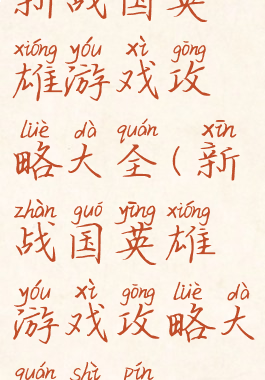 新战国英
xióng yóu xì gōng
雄游戏攻
lüè dà quán xīn
略大全(新
zhàn guó yīng xióng
战国英雄
yóu xì gōng lüè dà
游戏攻略大
quán shì pín